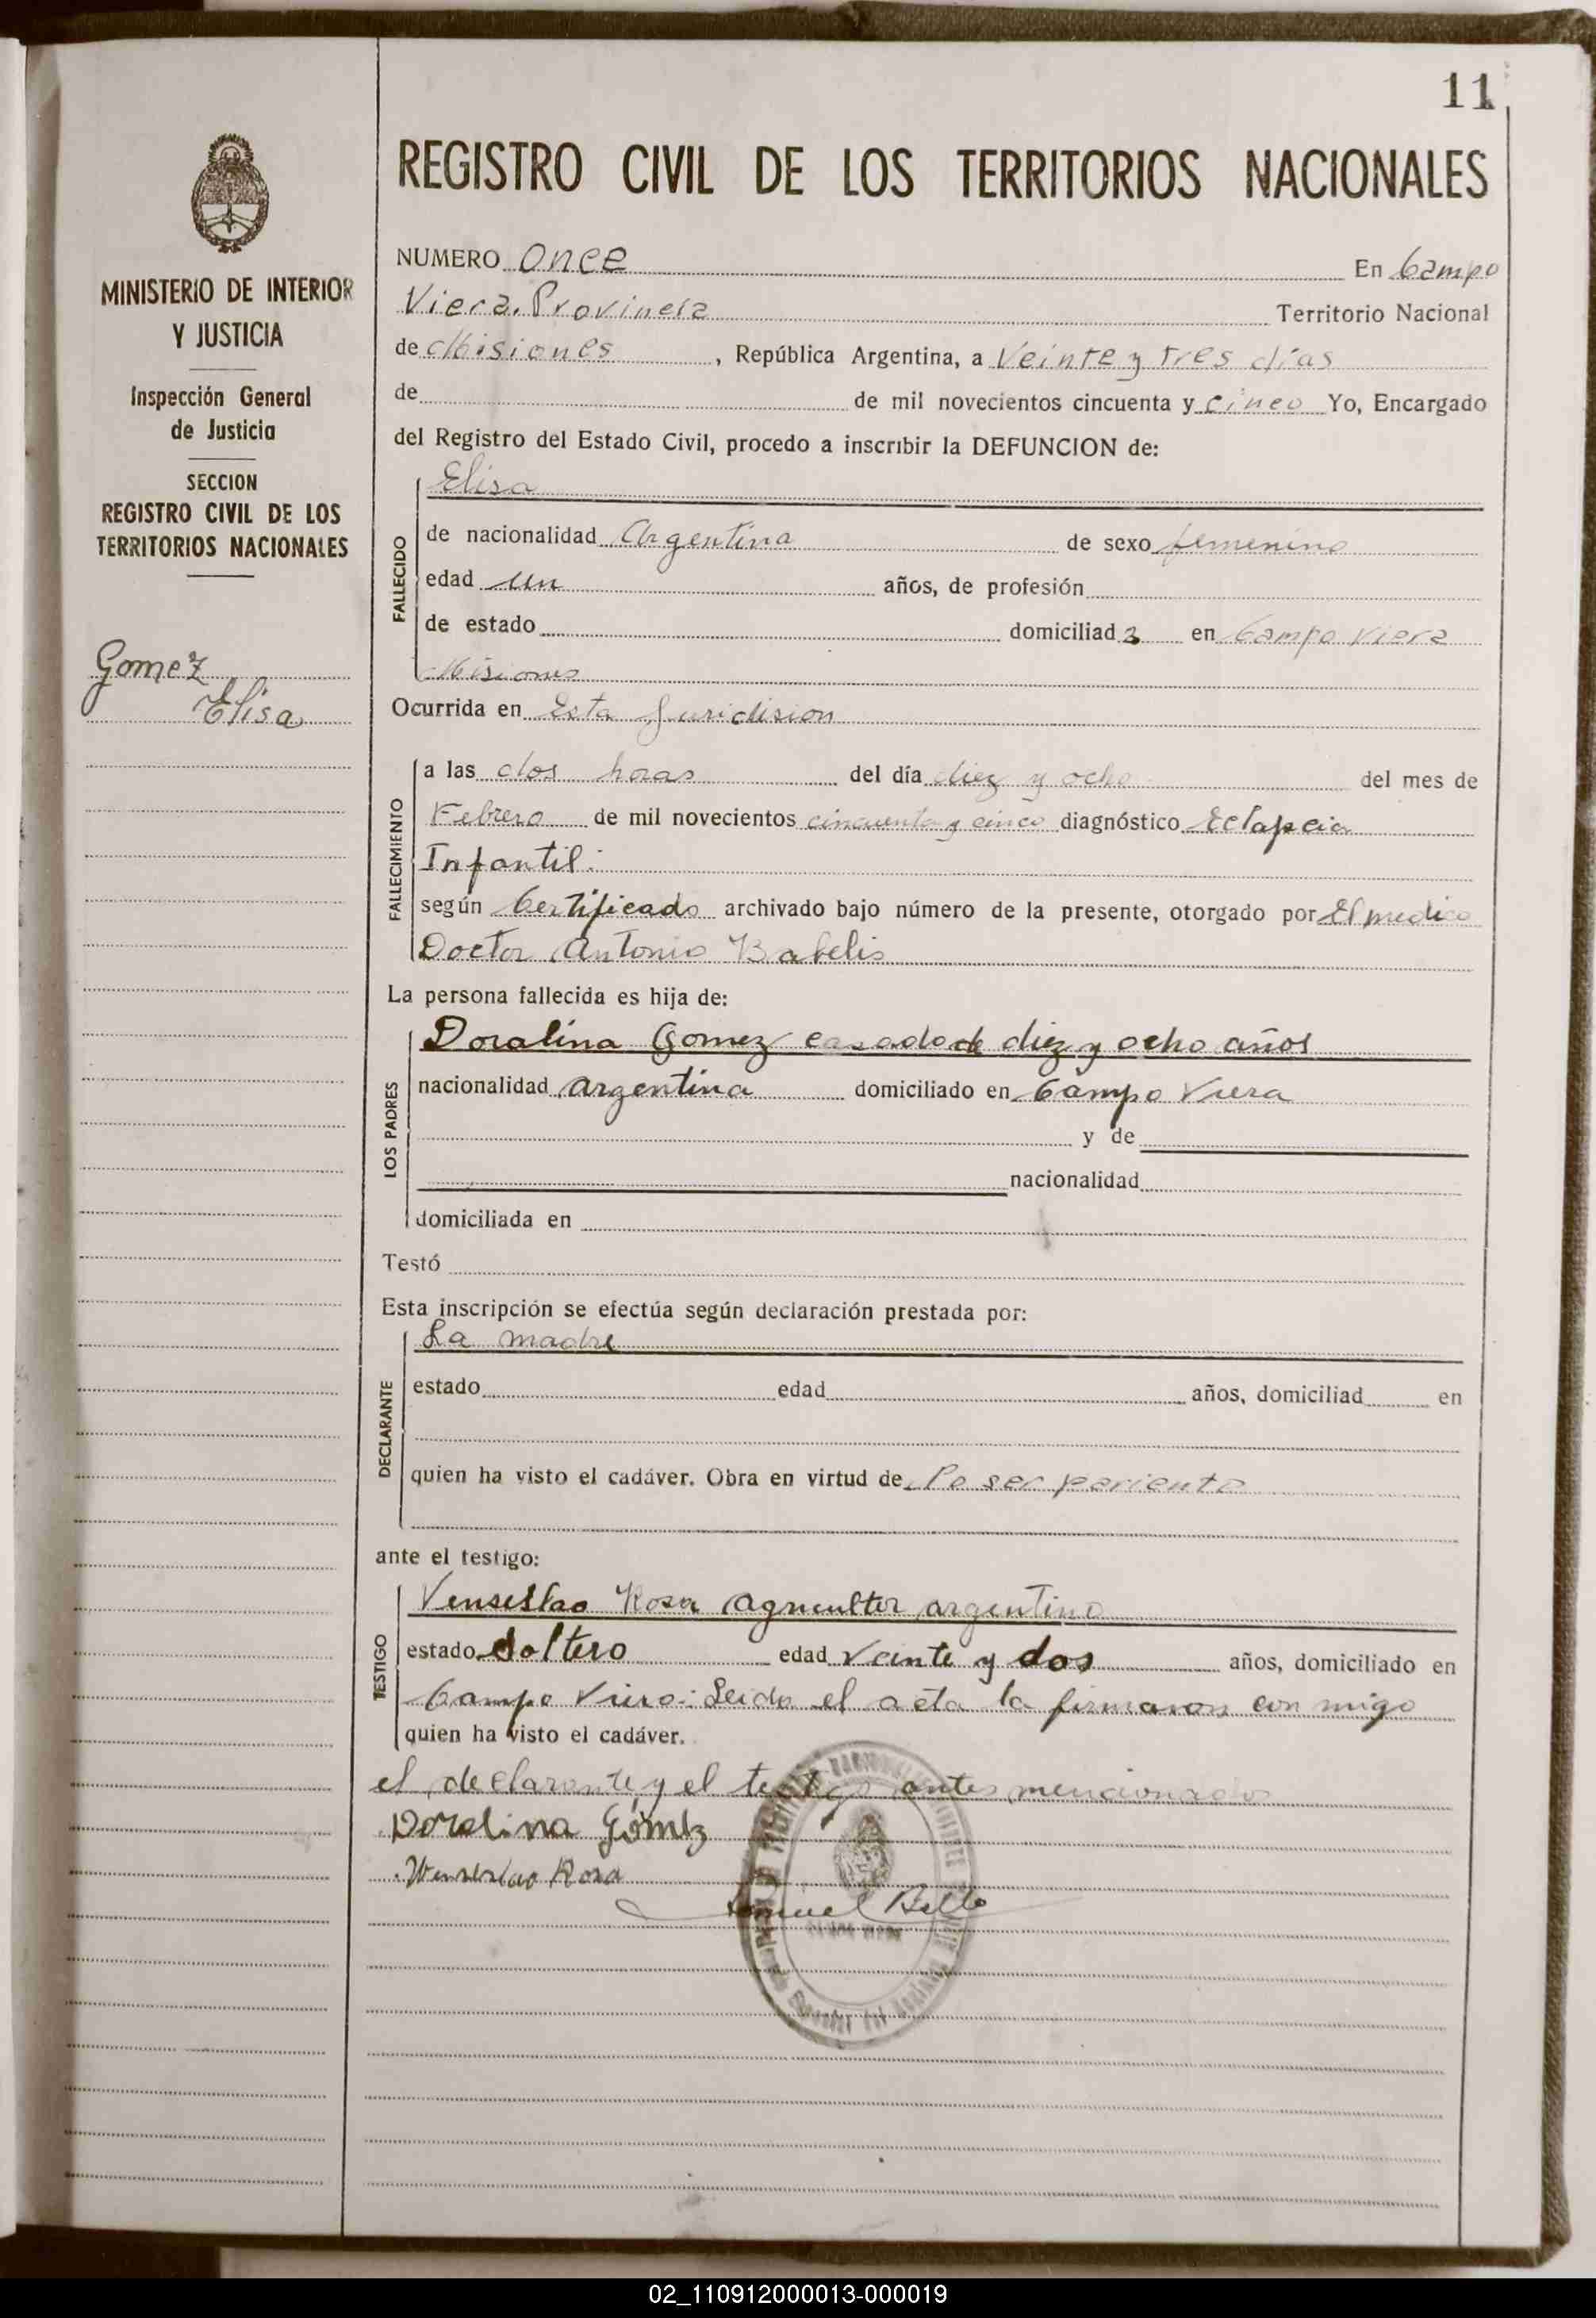 11
REGISTRO CIVIL DE LOS TERRITORIOS NACIONALES
MINISTERIO DE INTERIOR
Y JUSTICIA
Inspección General
de Justicia
SECCION
REGISTRO CIVIL DE LOS
TERRITORIOS NACIONALES
Gomez
Elisa
NUMERO Once En Campo
Viera. Provincia Territorio Nacional
de Misiones, República Argentina, a Veinte y tres días
de de mil novecientos cincuenta y cinco Yo, Encargado
del Registro del Estado Civil, procedo a inscribir la DEFUNCION de:
FALLECIDO
Elisa
de nacionalidad Argentina de sexo femenino
edad un años, de profesión
de estado domiciliada en Campo Viera
Misiones
Ocurrida en Esta Juridision
FALLECIMIENTO
a las dos horas del día diez y ocho del mes de
Febrero de mil novecientos cincuenta y cinco diagnóstico Eclapcia
Infantil.
según Certificado archivado bajo número de la presente, otorgado por El medico
Doctor Antonio Babelis
La persona fallecida es hija de:
LOS PADRES
Doralina Gomez casado de diez y ocho años
nacionalidad argentina domiciliado en Campo Viera
y de
nacionalidad
domiciliada en
Testó
Esta inscripción se efectúa según declaración prestada por:
DECLARANTE
La madre
estado edad años, domiciliad en
quien ha visto el cadáver. Obra en virtud de Po ser pariente
ante el testigo:
TESTIGO
Venseslao Rosa agricultor argentino
estado Soltero edad Veinte y dos años, domiciliado en
Campo Viera. Leida el acta la firmaron con migo
quien ha visto el cadáver.
el declarante y el testigo antes mencionado
Doralina Gómez
Wenseslao Rosa
Samuel Bello
02_110912000013-000019